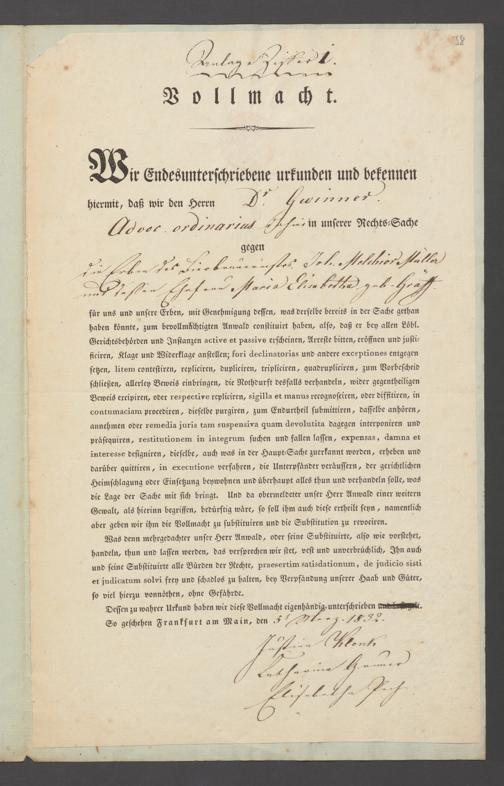 38
Anlage Ziffer 1.
Vollmacht.
Wir Endesunterschriebene urkunden und bekennen
hiermit, daß wir den Herrn Dr Gwinner.
Advoc. ordinarius in unserer Rechts-Sache
gegen
die Erben des Joh. Melchior Müller
und dessen Ehefrau Maria Elisabetha geb. Gräff.
für uns und unsere Erben, mit Genehmigung dessen, was derselbe bereits in der Sache gethan
haben könnte, zum bevollmächtigten Anwald constituirt haben, also, daß er bey allen Löbl.
Gerichtsbehörden und Instanzen active et passive erscheinen, Arreste bitten, eröffnen und justi-
ficiren, Klage und Widerklage anstellen; fori declinatorias und andere exceptiones entgegen
setzen, litem contestiren, repliciren, dupliciren, tripliciren, quadrupliciren, zum Vorbescheid
schließen, allerley Beweis einbringen, die Nothdurft desfalls verhandeln, wider gegentheiligen
Beweis excipiren, oder respective repliciren, sigilla et manus recognosciren, oder diffitiren, in
contumaciam procediren, dieselbe purgiren, zum Endurtheil submittiren, dasselbe anhören,
annehmen oder remedia juris tam suspensiva quam devolutiva dagegen interponiren und
präsequiren, restitutionem in integrum suchen und fallen lassen, expensas, damna et
interesse designiren, dieselbe, auch was in der Haupt-Sache zuerkannt worden, erheben und
darüber quittiren, in executione verfahren, die Unterpfänder veräussern, der gerichtlichen
Heimschlagung oder Einsetzung beywohnen und überhaupt alles thun und verhandeln solle, was
die Lage der Sache mit sich bringt. Und da obermeldeter unser Herr Anwald einer weitern
Gewalt, als hierinn begriffen, bedürftig wäre, so soll ihm auch diese ertheilt seyn, namentlich
aber geben wir ihm die Vollmacht zu substituiren und die Substitution zu revociren.
Was denn mehrgedachter unser Herr Anwald, oder seine Substituirte, also wie vorstehet,
handeln, thun und lassen werden, das versprechen wir stet, vest und unverbrüchlich, Ihn auch
und seine Substituirte alle Bürden der Rechte, praesertim satisdationum, de judicio sisti
et judicatum solvi frey und schadlos zu halten, bey Verpfändung unserer Haab und Güter,
so viel hierzu vonnöthen, ohne Gefährde.
Dessen zu wahrer Urkund haben wir diese Vollmacht eigenhändig unterschrieben
So geschehen Frankfurt am Main, den 5t Merz 1832.
Justina
Catharina
Elisabetha